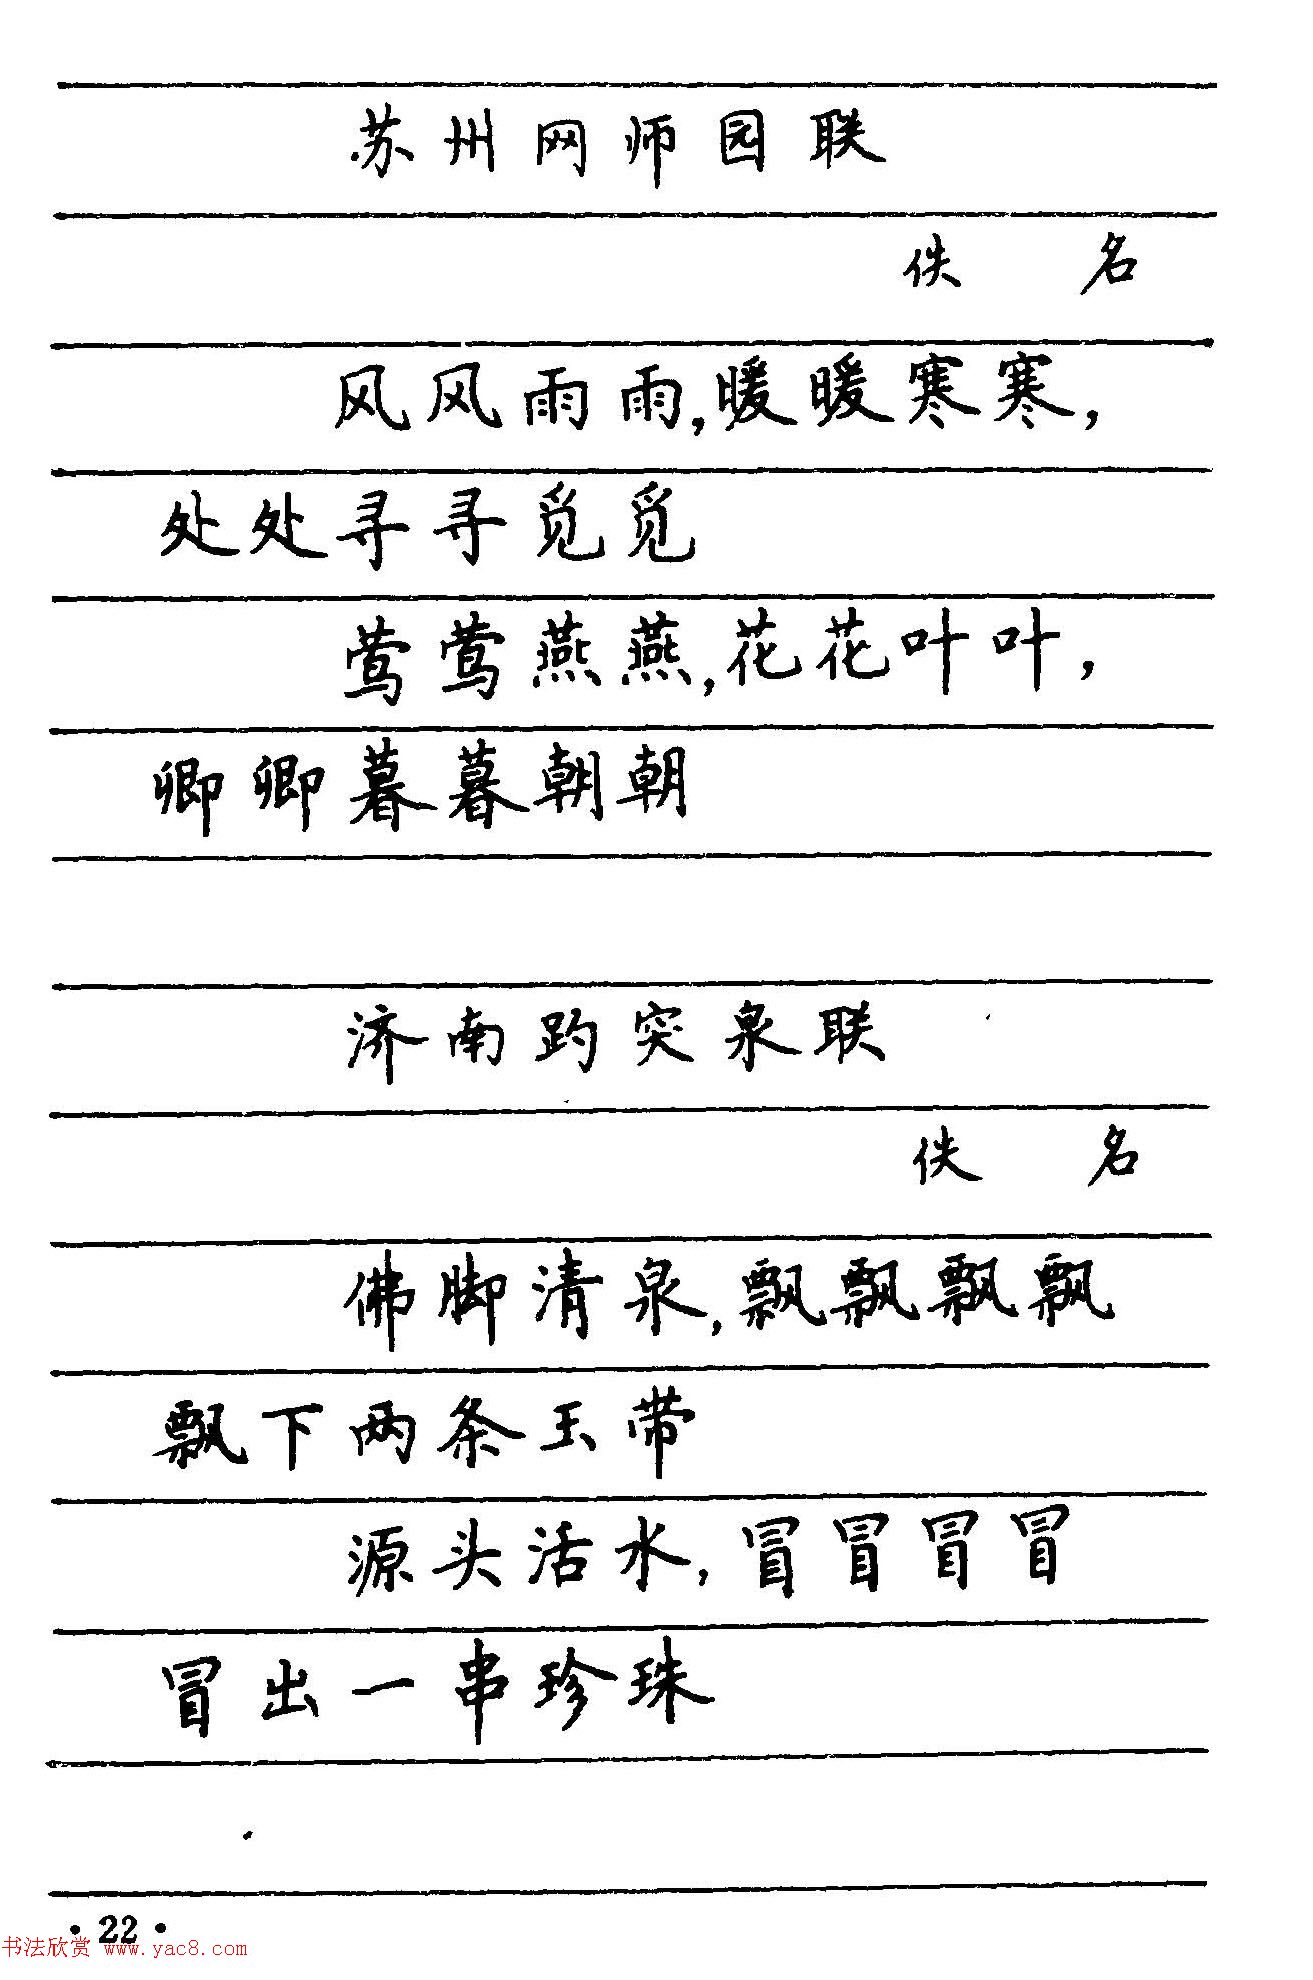 苏州网师园联
佚 名
风风雨雨,暖暖寒寒,
处处寻寻觅觅
莺莺燕燕,花花叶叶,
卿卿暮暮朝朝
济南趵突泉联
佚 名
佛脚清泉,飘飘飘飘
飘下两条玉带
源头活水,冒冒冒冒
冒出一串珍珠
·22·
书法欣赏 www.yac8.com